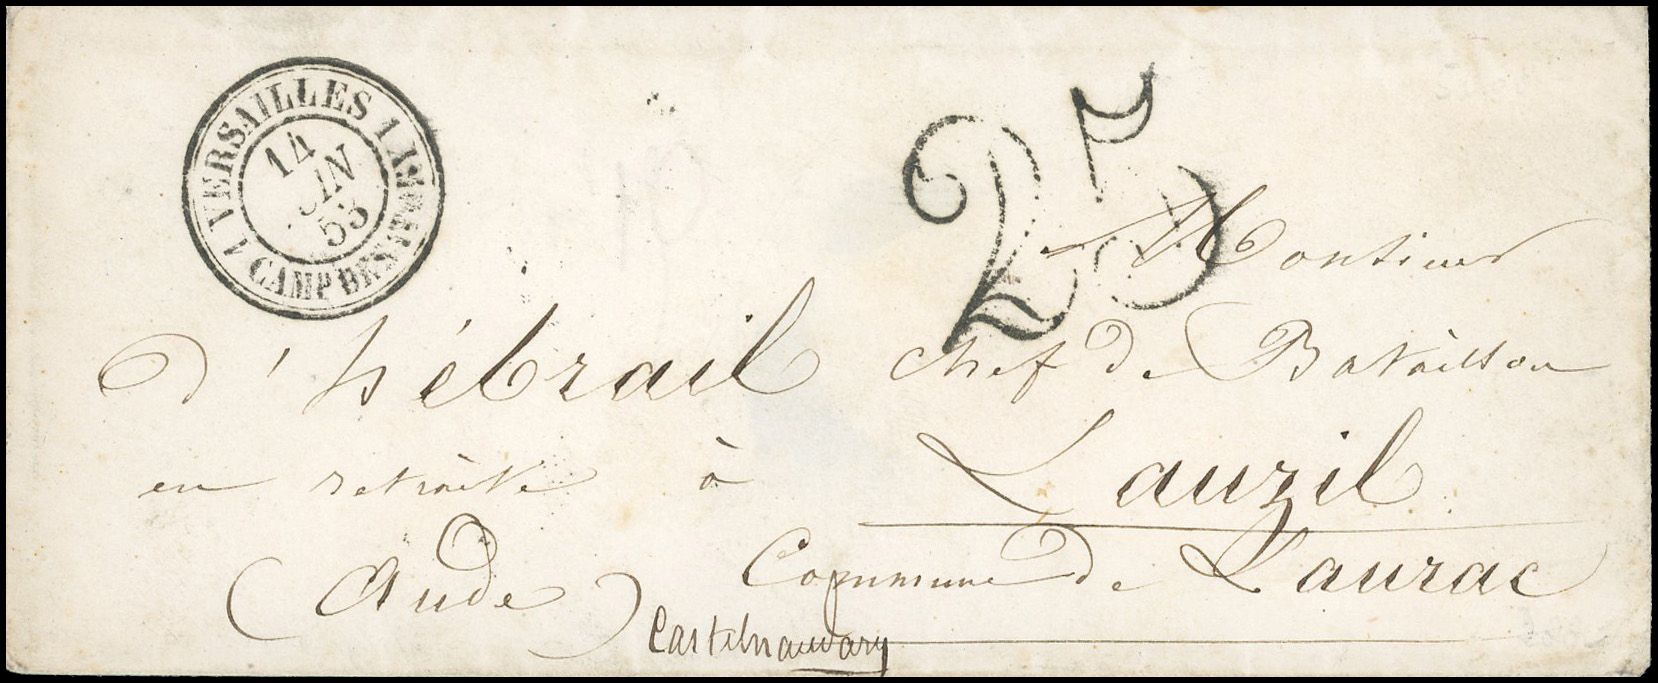 1 VERSAILLES 1
CAMP DE
14
JUIN
53
25
Monsieur
d'hébrail chef de Bataillon
en retraite à Lauzil
Commune de Laurac
(Aude)
Castelnaudary